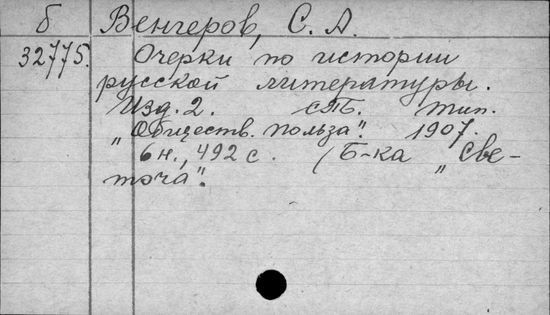 б Венгеров, С. А.
32775. Очерки по истории
русской литературы.
Изд. 2. СПб. тип.
„Обществ. польза". 1907.
6 н., 492 с. (Б-ка „Све-
точа".